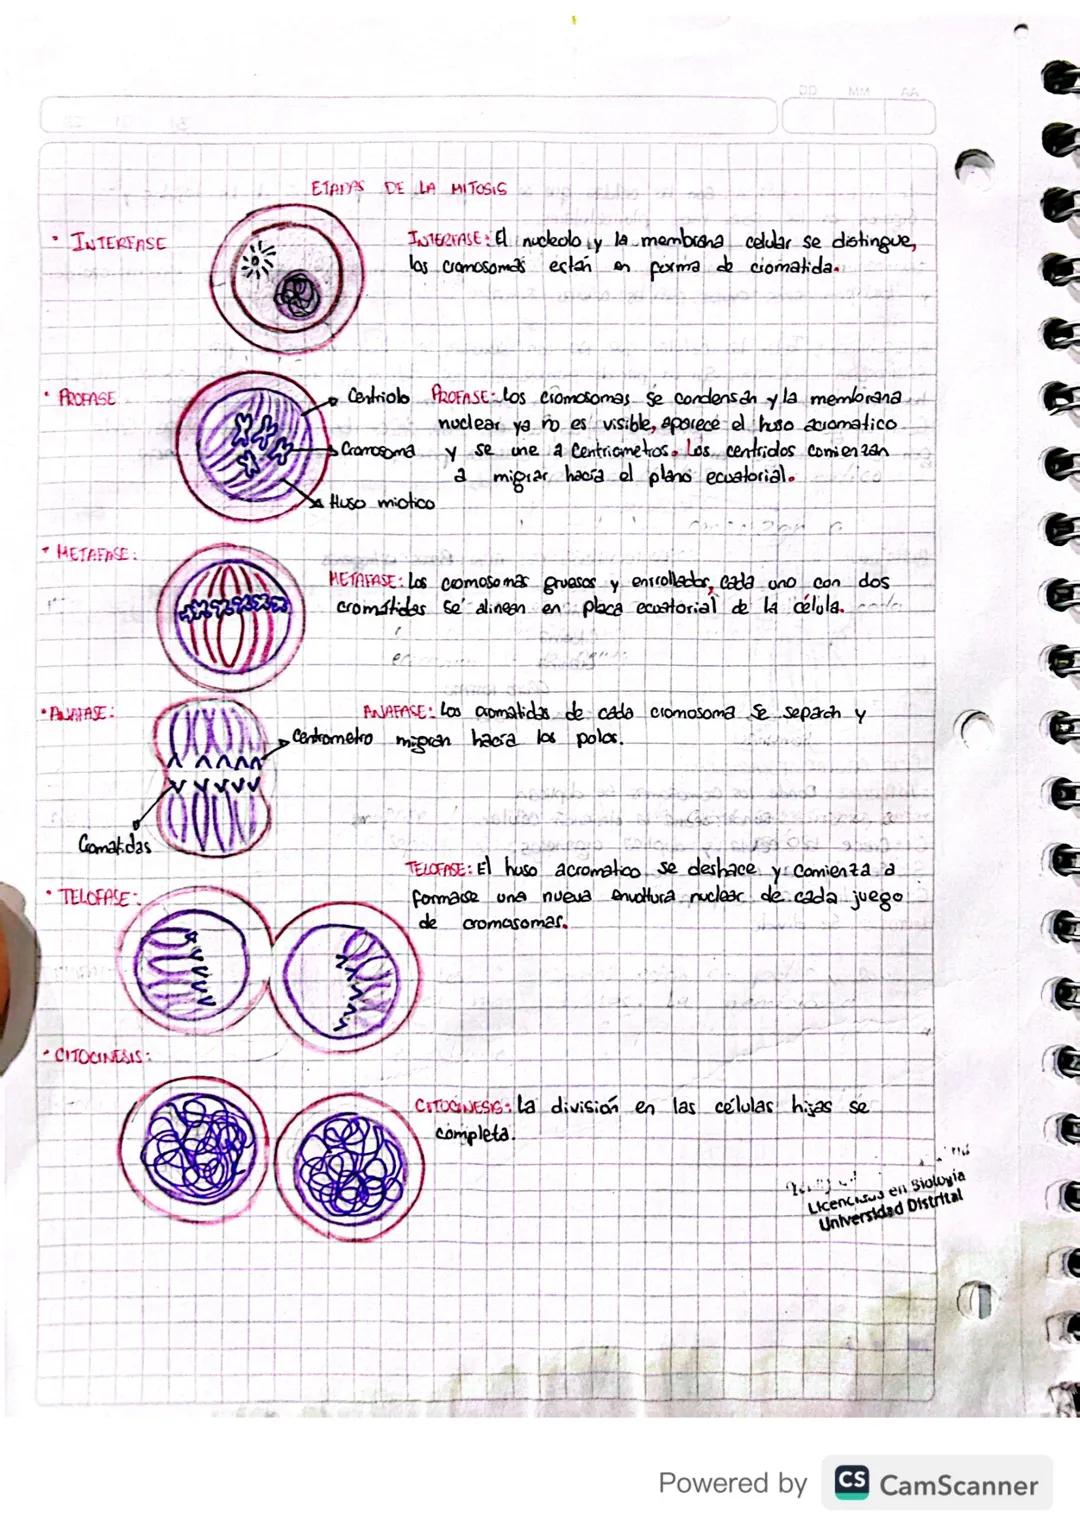 DD MM AA
ETAPAS DE LA MITOSIS
• INTERFASE
INTERFASE: El nucleolo y la membrana celular se distingue,
los cromosomas están en forma de cromatida.
• PROFASE
Centriolo
Cromosoma
Huso miotico
PROFASE: Los cromosomas se condensan y la membrana
nuclear ya no es visible, aparece el huso acromatico
y se une a Centriometros. Los centridos comienzan
a migrar hacía el plano ecuatorial.
• METAFASE:
METAFASE: Los cromosomas gruesos y enrrollados, cada uno con dos
cromátidas se alinean en placa ecuatorial de la célula.
• ANAFASE:
ANAFASE: Los cromatidas de cada cromosoma se separan y
migran hacía los polos.
Centrometro
Cromatidas
• TELOFASE:
TELOFASE: El huso acromatico se deshace y comienza a
formarse una nueva envoltura nuclear de cada juego
de cromosomas.
• CITOCINESIS:
CITOCINESIS: La división en las células hijas se
completa.
Licenciado en Biología
Universidad Distrital
Powered by CS CamScanner